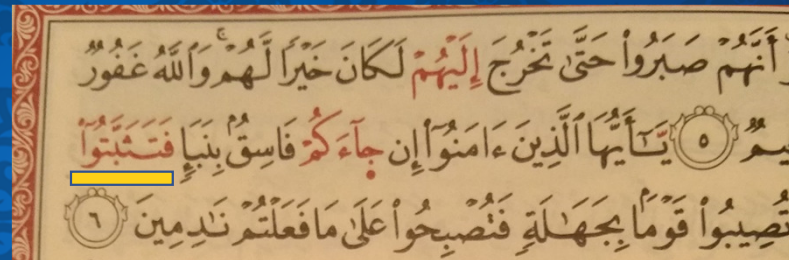 أَنَّهُمْ صَبَرُوا۟ حَتَّىٰ تَخْرُجَ إِلَيْهُمْ لَكَانَ خَيْرًا لَّهُمْ ۚ وَٱللَّهُ غَفُورٌ
ـيمٌ ٥ يَـٰٓأَيُّهَا ٱلَّذِينَ ءَامَنُوٓا۟ إِن جَآءَكُمْ فَاسِقٌۢ بِنَبَإٍ فَتَثَبَّتُوٓا۟
تُصِيبُوا۟ قَوْمًۢا بِجَهَـٰلَةٍ فَتُصْبِحُوا۟ عَلَىٰ مَا فَعَلْتُمْ نَـٰدِمِينَ ٦